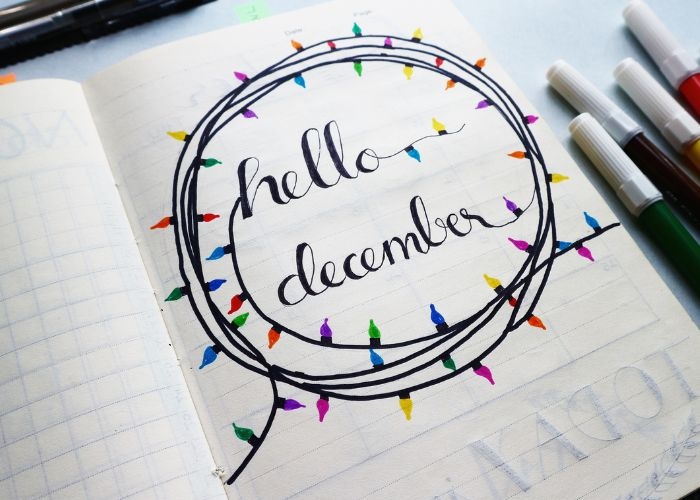 Date
Page
hello
december